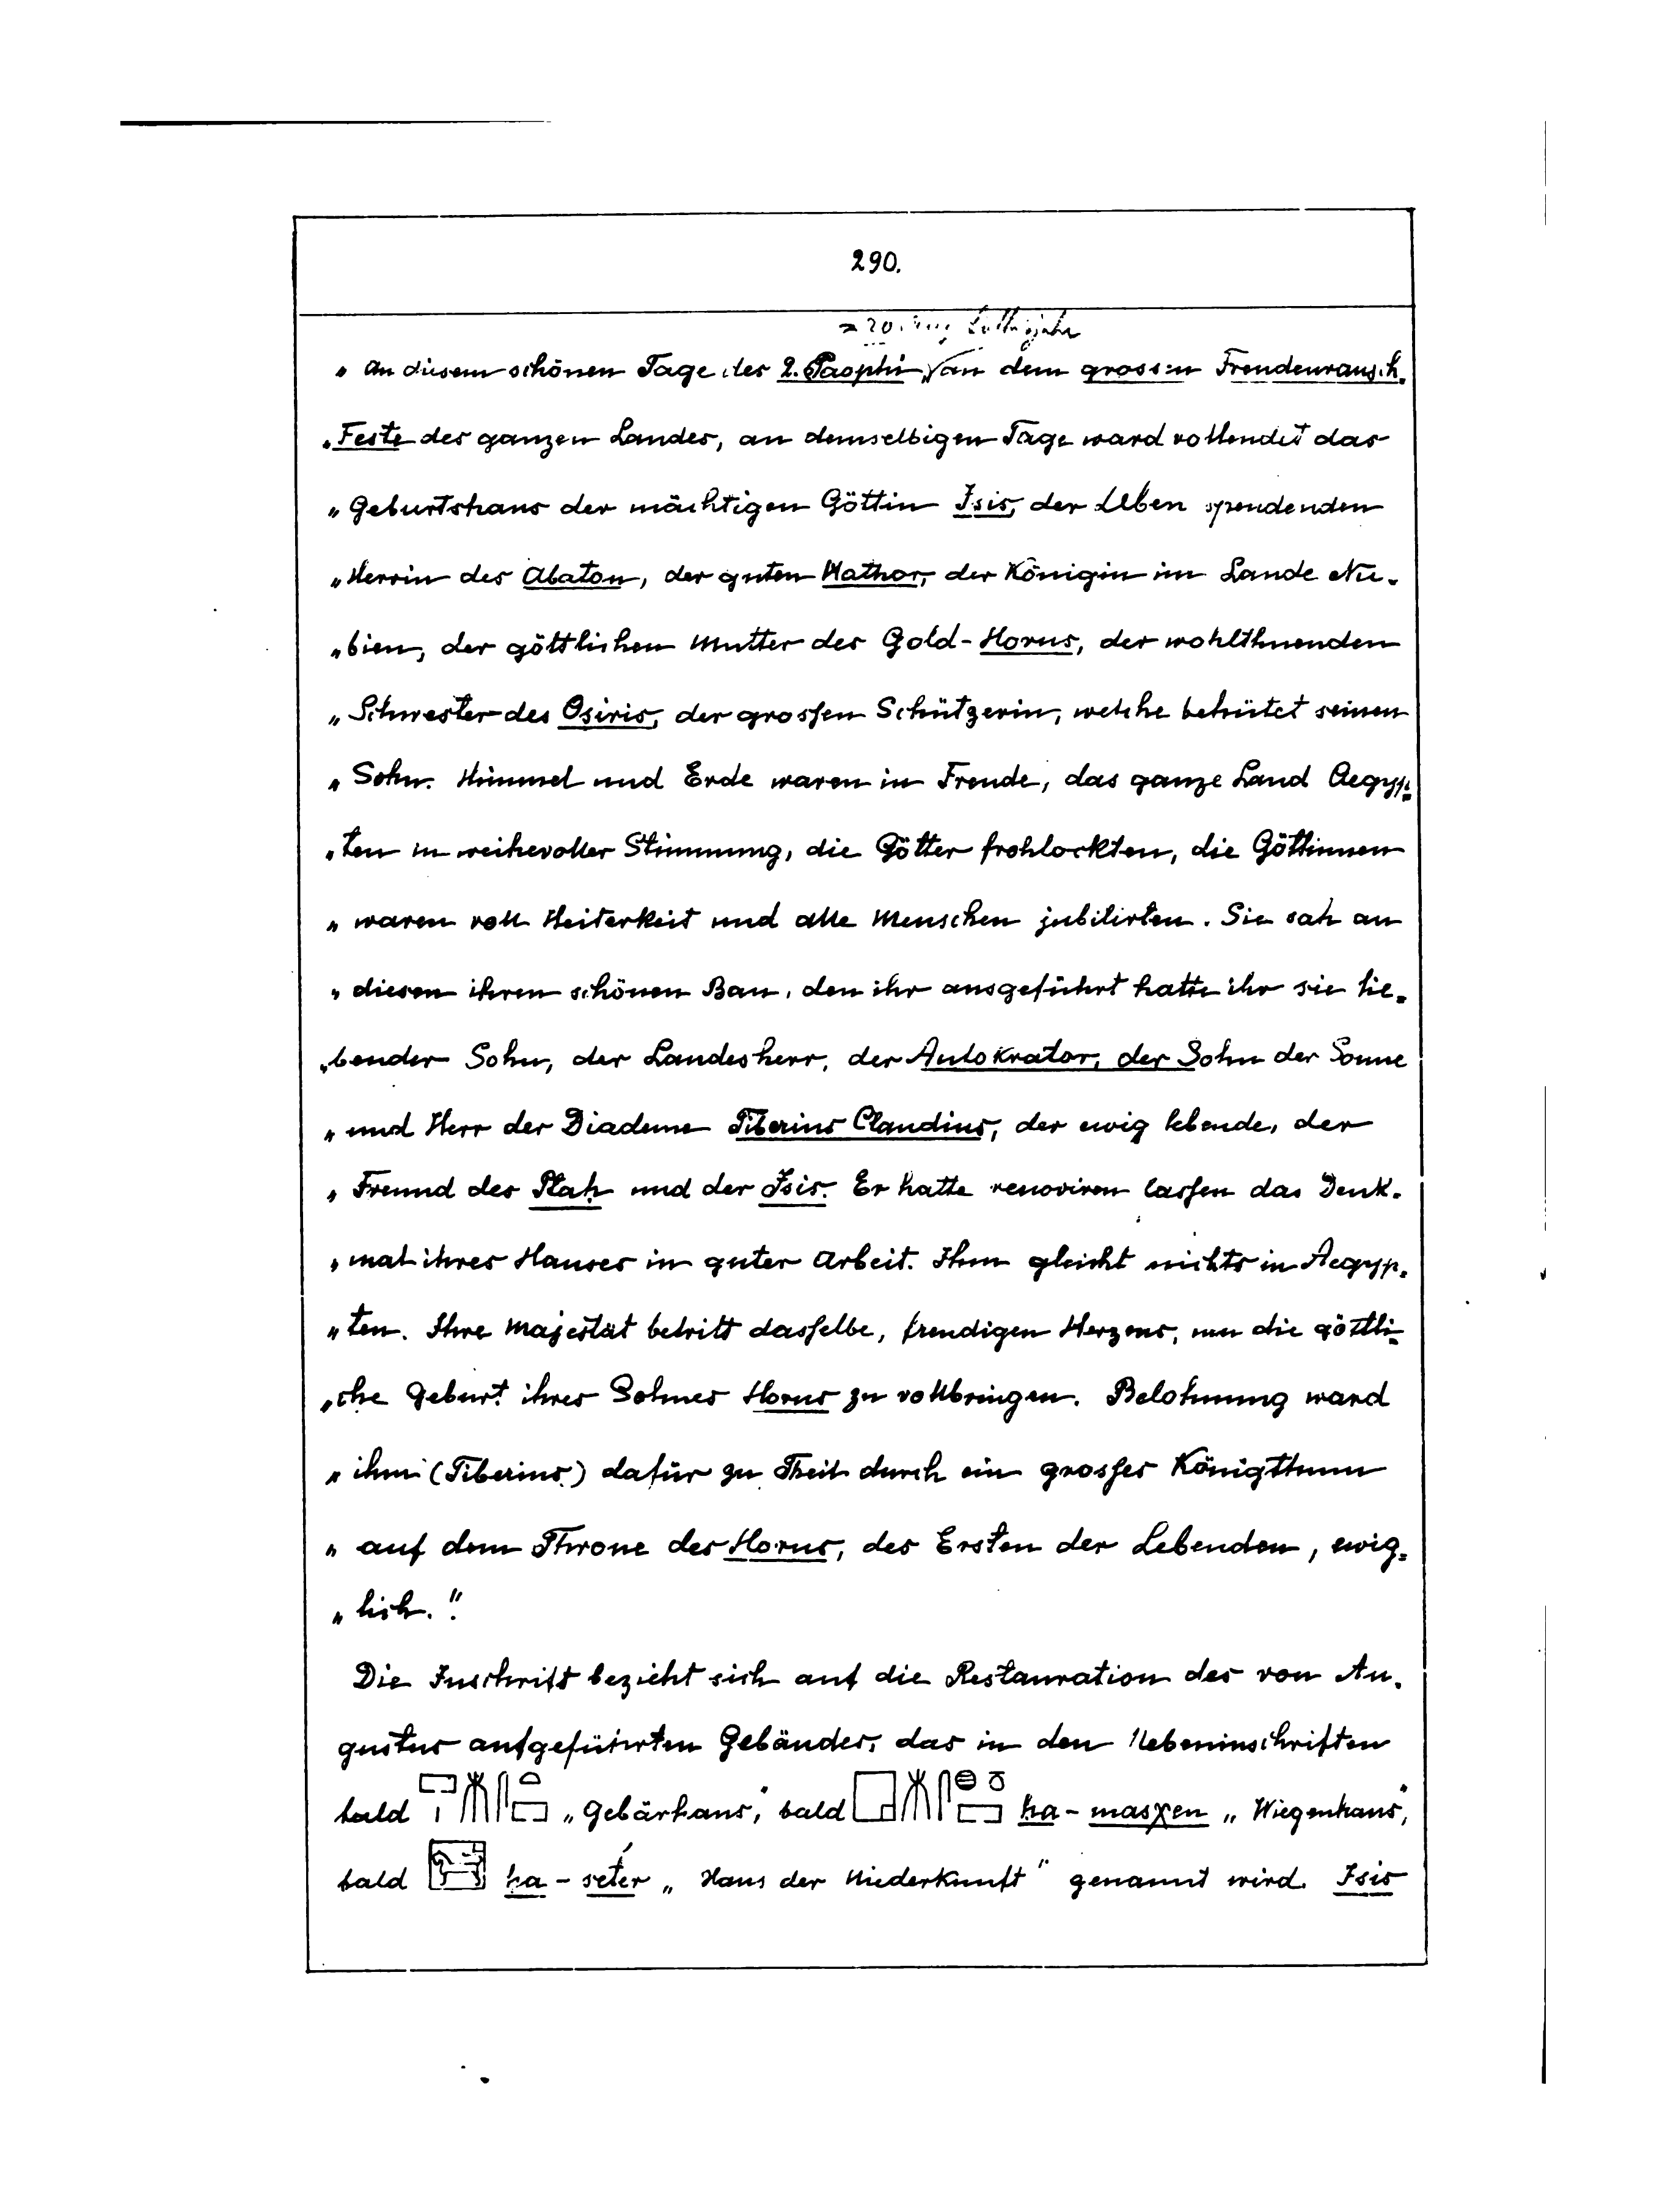 290.
= 20.
„ An diesem schönen Tage des 2. Paophi, an dem grossen Freudenrausch-
„Feste des ganzen Landes, an demselbigen Tage ward vollendet das
„Geburtshaus der mächtigen Göttin Isis, der Leben spendenden
„Herrin des Abaton, der guten Hathor, der Königin im Lande Nu-
„bien, der göttlichen Mutter des Gold-Horus, der wohlthuenden
„Schwester des Osiris, der grossen Schützerin, welche behütet seinen
„Sohn. Himmel und Erde waren in Freude, das ganze Land Aegyp-
„ten in weihevoller Stimmung, die Götter frohlockten, die Göttinnen
„waren voll Heiterkeit und alle Menschen jubilirten. Sie sah an
„diesen ihren schönen Bau, den ihr ausgeführt hatte ihr sie lie-
„bender Sohn, der Landesherr, der Autokrator, der Sohn der Sonne
„und Herr der Diademe Tiberius Claudius, der ewig lebende, der
„Freund des Ptaḥ und der Isis. Er hatte renoviren lassen das Denk-
„mal ihres Hauses in guter Arbeit. Ihm gleicht nichts in Aegyp-
„ten. Ihre Majestät betritt dasselbe, freudigen Herzens, um die göttli-
„che Geburt ihres Sohnes Horus zu vollbringen. Belohnung ward
„ihm (Tiberius) dafür zu Theil durch ein grosses Königthum
„auf dem Throne des Horus, des Ersten der Lebenden, ewig-
„lich."
Die Inschrift bezieht sich auf die Restauration des von Au-
gustus aufgeführten Gebäudes, das in den Nebeninschriften
bald „Gebärhaus", bald ha-masχen „Wiegenhaus",
bald ha-seter „Haus der Niederkunft" genannt wird. Isis